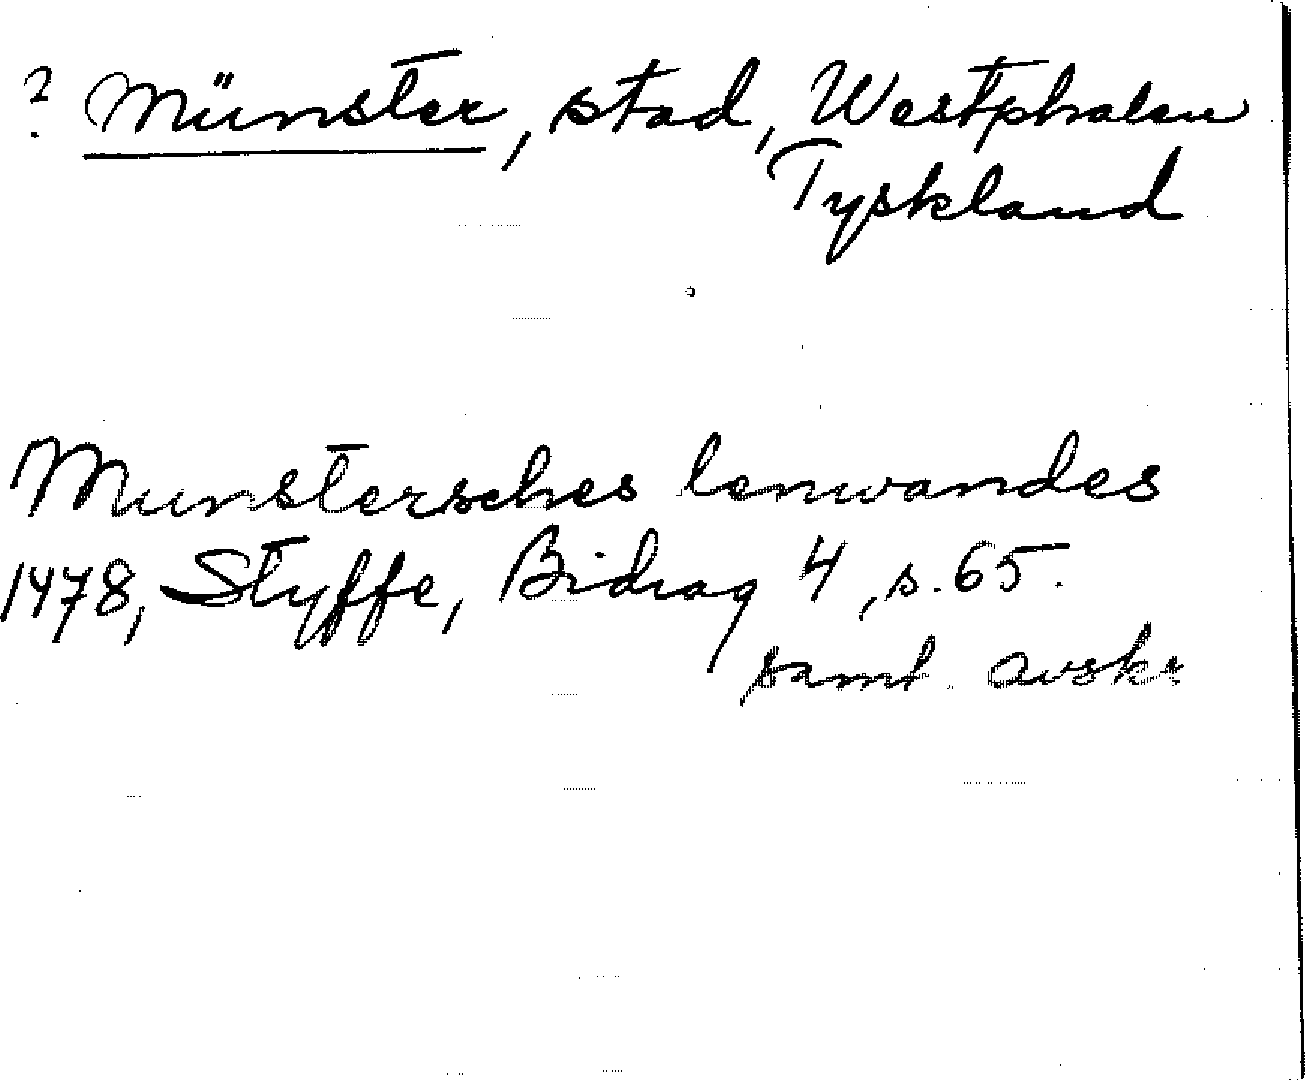 ? Münster, stad, Westphalen
Tyskland
Munstersches lenwandes
1478, Styffe, Bidrag 4, s. 65.
samt. avskr